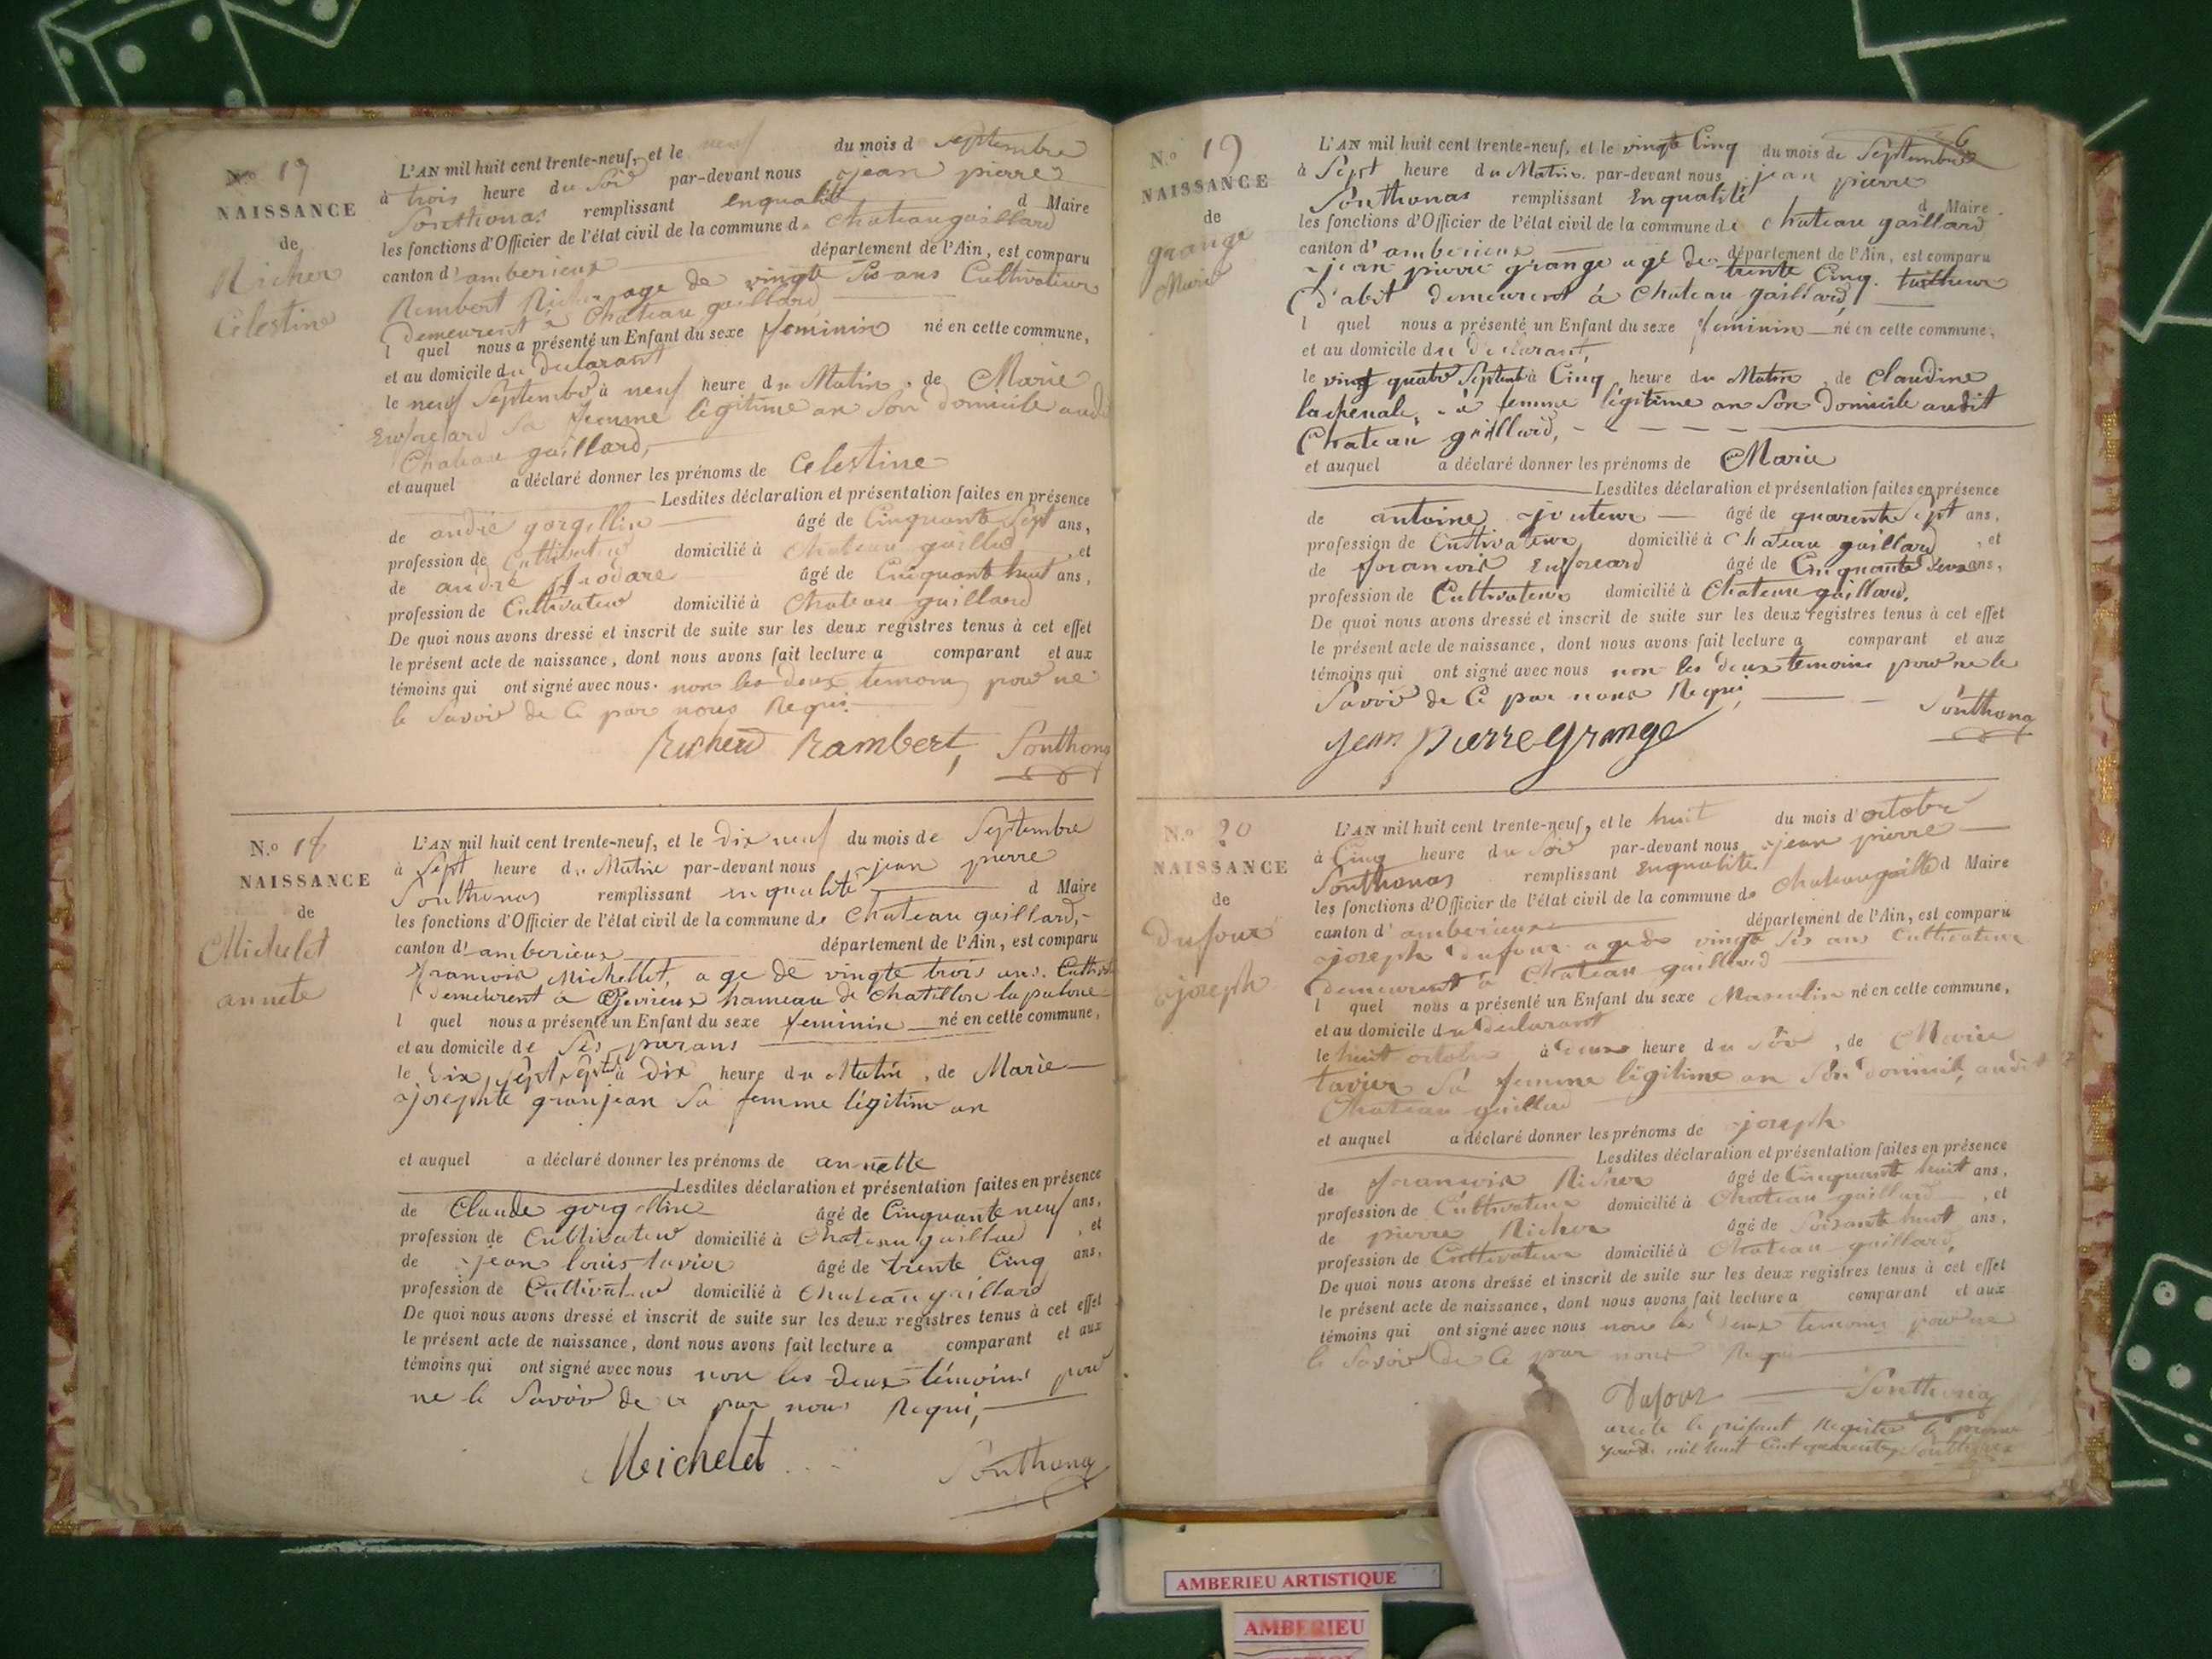 N.o 17
NAISSANCE
de
Richer
Celestine
L'AN mil huit cent trente-neuf, et le neuf du mois d septembre
à trois heure du Soir par-devant nous jean pierre
Sonthonas remplissant enqualité d Maire
les fonctions d'Officier de l'état civil de la commune de Chateau gaillard
canton d'amberieux département de l'Ain, est comparu
Rembert Richer age de vingte Sis ans Cultivateur
demeurent a Chateau gaillard
l quel nous a présenté un Enfant du sexe feminin né en cette commune,
et au domicile du declarant
le neuf Septembre à neuf heure du Matin, de Marie
Enforeard Sa femme légitime an Son domicile audit
Chateau gaillard,
et auquel a déclaré donner les prénoms de Celestine
Lesdites déclaration et présentation faites en présence
de andré gorgellin âgé de Cinquante Sept ans,
profession de Cultivateur domicilié à Chateau gaillard, et
de andré âgé de Cinquante huit ans,
profession de Cultivateur domicilié à Chateau gaillard
De quoi nous avons dressé et inscrit de suite sur les deux registres tenus à cet effet
le présent acte de naissance, dont nous avons fait lecture a comparant et aux
témoins qui ont signé avec nous. non les deux temoins pour ne
le Savoir de Ce par nous Requi
Richerd Rambert, Sonthonas
N.o 18
NAISSANCE
de
Michelet
annete
L'AN mil huit cent trente-neuf, et le dix neuf du mois de Septembre
à Sept heure du Matin par-devant nous jean pierre
Sonthonas remplissant en qualité d Maire
les fonctions d'Officier de l'état civil de la commune de Chateau gaillard,
canton d'amberieux département de l'Ain, est comparu
francois Michellet, age de vingte trois ans. Cultivat
demeurent à Gevrieux hameau de Chatillon la palue
l quel nous a présenté un Enfant du sexe feminin né en cette commune,
et au domicile de Ses parans
le dix sept 7bre à dix heure du Matin, de Marie
josephte granjean Sa femme légitime an
et auquel a déclaré donner les prénoms de annette
Lesdites déclaration et présentation faites en présence
de Claude gorgellin âgé de Cinquante neuf ans,
profession de Cultivateur domicilié à Chateau gaillard, et
de jean louis tavier âgé de trente Cinq ans,
profession de Cultivateur domicilié à Chateau gaillard
De quoi nous avons dressé et inscrit de suite sur les deux registres tenus à cet effet
le présent acte de naissance, dont nous avons fait lecture a comparant et aux
témoins qui ont signé avec nous non les deux témoins pour
ne le Savoir de ce par nous Requi,
Michelet Sonthonas
6
N.o 19
NAISSANCE
de
grange
Marie
L'AN mil huit cent trente-neuf, et le vingte Cinq du mois de Septembre
à Sept heure du Matin par-devant nous jean pierre
Sonthonas remplissant Enqualité d Maire
les fonctions d'Officier de l'état civil de la commune de Chateau gaillard
canton d'amberieux département de l'Ain, est comparu
jean pierre grange age de trente Cinq. tailheur
d'abit demeurent à Chateau gaillard,
l quel nous a présenté un Enfant du sexe feminin né en cette commune,
et au domicile du declarant,
le vingt quatre Septembre à Cinq heure du Matin, de Claudine
lachenale, Sa femme légitime an Son domicile audit
Chateau gaillard,
et auquel a déclaré donner les prénoms de Marie
Lesdites déclaration et présentation faites en présence
de antoine jouteur âgé de quarente Sept ans,
profession de Cultivateur domicilié à Chateau gaillard, et
de francois Enforeard âgé de Cinquante deux ans,
profession de Cultivateur domicilié à Chateau gaillard.
De quoi nous avons dressé et inscrit de suite sur les deux registres tenus à cet effet
le présent acte de naissance, dont nous avons fait lecture a comparant et aux
témoins qui ont signé avec nous non les deux temoins pour ne le
Savoir de Ce par nous Requi,
Sonthonas
jean pierre grange
N.o 20
NAISSANCE
de
dufour
joseph
L'AN mil huit cent trente-neuf, et le huit du mois d'octobre
à Cinq heure du Soir par-devant nous jean pierre
Sonthonas remplissant Enqualité d Maire
les fonctions d'Officier de l'état civil de la commune de Chateau gaillard
canton d'amberieux département de l'Ain, est comparu
joseph dufour age de vingte Sis ans Cultivateur
demeurent a Chateau gaillard
l quel nous a présenté un Enfant du sexe Masculin né en cette commune,
et au domicile du declarant
le huit octobre à deux heure du Soir, de Marie
tavier Sa femme légitime an Son domicile audit
Chateau gaillard
et auquel a déclaré donner les prénoms de joseph
Lesdites déclaration et présentation faites en présence
de francois Richer âgé de Cinquante huit ans,
profession de Cultivateur domicilié à Chateau gaillard, et
de pierre Richer âgé de Soisante huit ans,
profession de Cultivateur domicilié à Chateau gaillard,
De quoi nous avons dressé et inscrit de suite sur les deux registres tenus à cet effet
le présent acte de naissance, dont nous avons fait lecture a comparant et aux
témoins qui ont signé avec nous non les deux temoins pour ne
le Savoir de Ce par nous Requi
Dufour Sonthonas
arete le présant Registre le
mil huit Cent quarente Sonthonas
AMBERIEU ARTISTIQUE
AMBERIEU